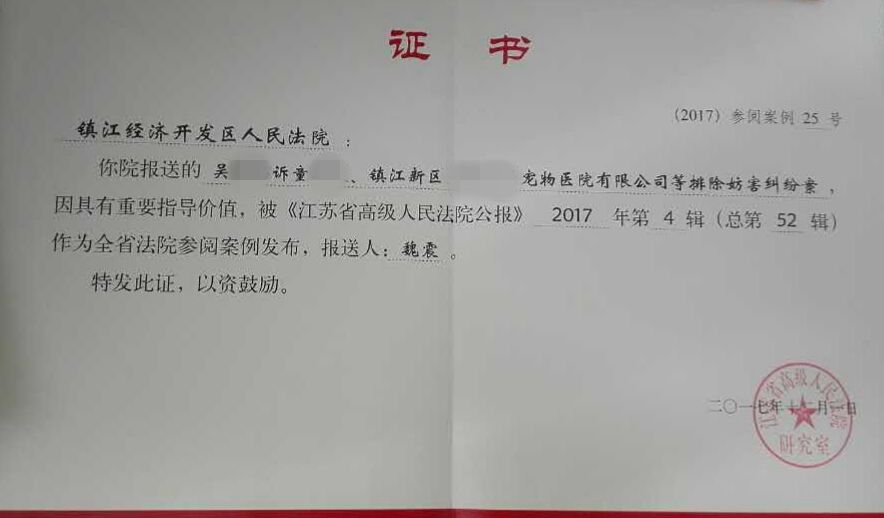 证 书
(2017)参阅案例 25 号
镇江经济开发区人民法院：
你院报送的 吴 诉童 、镇江新区 宠物医院有限公司等排除妨害纠纷案，
因具有重要指导价值，被《江苏省高级人民法院公报》 2017 年第 4 辑（总第 52 辑）
作为全省法院参阅案例发布，报送人：魏震。
特发此证，以资鼓励。
二〇一七年十二月一日
江苏省高级人民法院
研究室